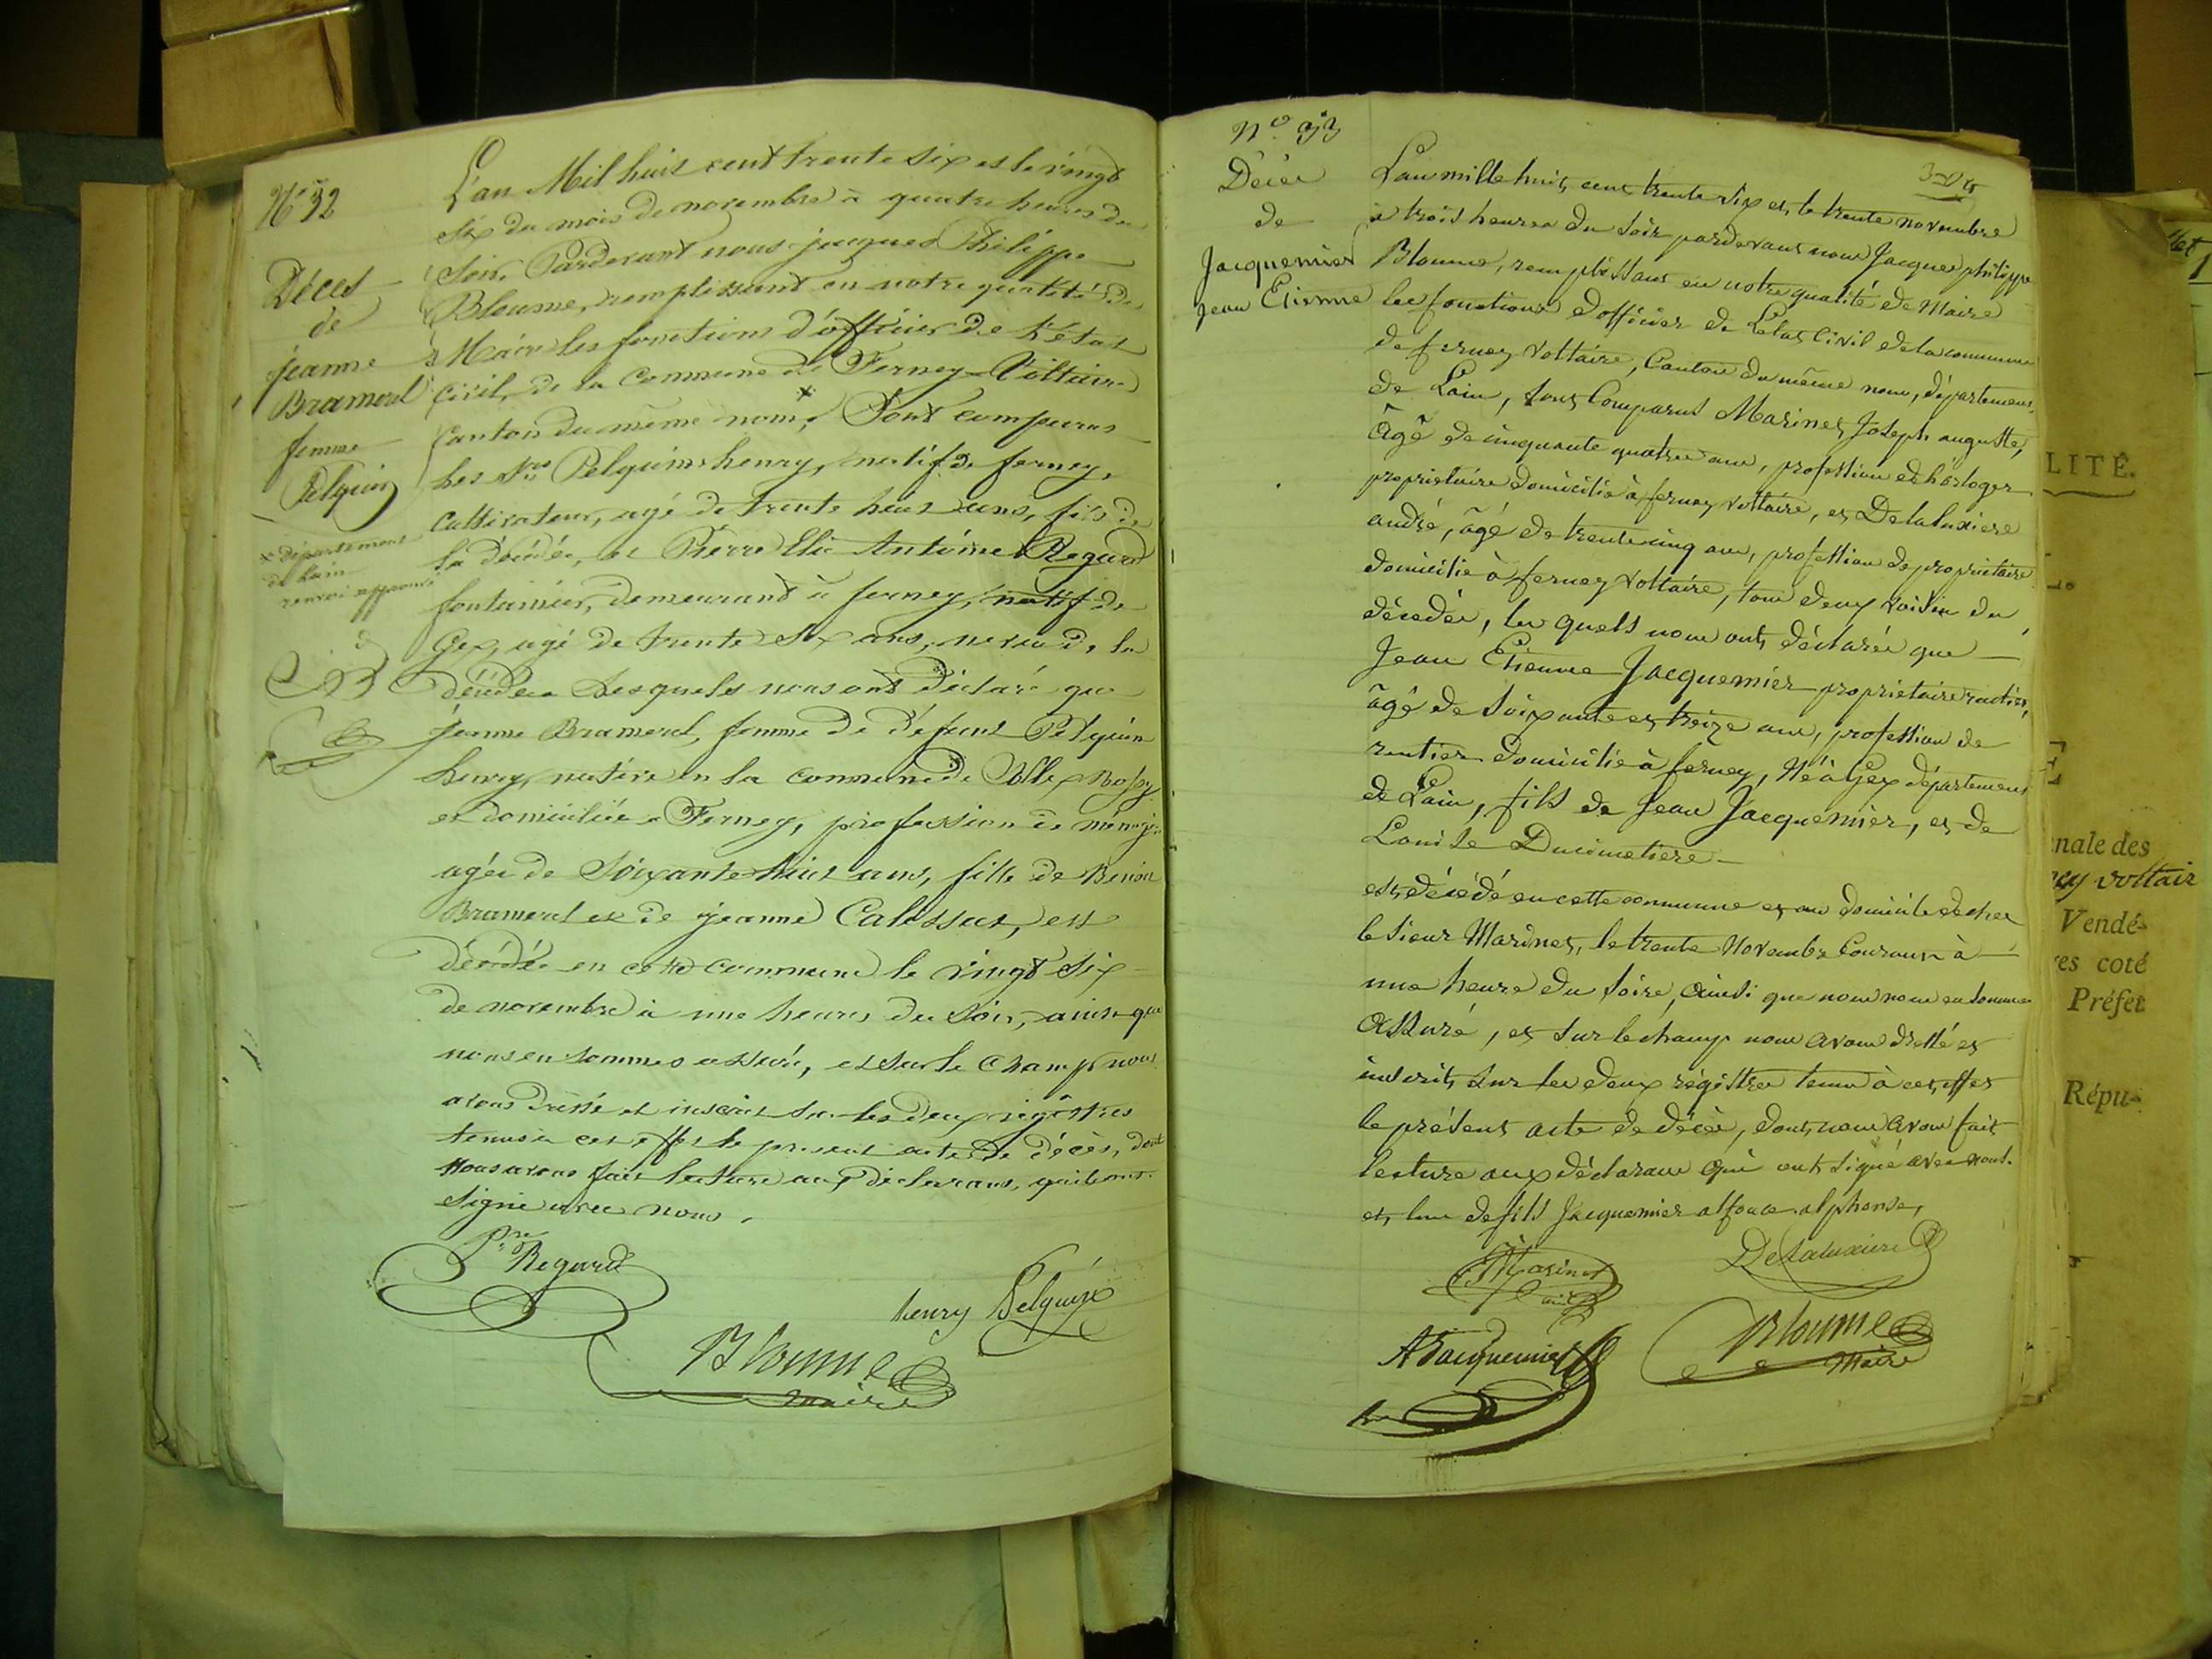 N° 32
Décès
de
jeanne
Bramerel
femme
Pelquin
x département
de Lain
renvoi approuvé
B
L'an Mil huit cent trente six et le vingt
Six du mois de novembre à quatre heures du
Soir. Pardevant nous jacques Philippe
Bloume, remplissant en notre qualité de
Maire les fonctions d'officier de l'état
civil, de la Commune de Ferney-Voltaire
Canton du même nom, x Sont comparus
les Srs Pelquin henry, natif de ferney,
Cultivateur, agé de trente huit ans, fils de
la décédée, et Pierre Elie Antoine Regard
fontainier, demeurant à ferney, natif de
Gex, agé de trente six ans, neveu de la
décédée Lesquels nous ont déclaré que
jeanne Bramerel, femme de défunt Pelquin
henry, native en la commune de
et domiciliée à Ferney, profession de ménagère
agée de Soixante huit ans, fille de Benoit
Bramerel et de jeanne Calossat, est
décédée en cette commune le vingt Six
de novembre à une heure du Soir, ainsi que
nous en sommes assuré, et sur le champ nous
avons dressé et inscrit sur les deux régistres
tenus à cet effet le present acte de décès, dont
Nous avons fait lecture aux déclarans, qui ont
Signé avec nous.
Pre Regard
henry Pelquin
Bloume
maire
N° 33
Décès
de
Jacquemier
Jean Etienne
L'an mille huit cent trente six et le trente novembre
à trois heures du soir pardevant nous Jacques philippe
Bloume, remplissant en notre qualité de Maire
les fonctions d'officier de L'état Civil de la commune
de ferney voltaire, Canton du même nom, département
de Lain, sont Comparus Marinet Joseph auguste,
âgé de cinquante quatre ans, profession d'horloger
propriétaire domicilié à ferney voltaire, et Delaluxiere
andré, âgé de trente cinq ans, profession de proprietaire
domicilié à ferney voltaire, tous deux voisin du
décédée, les quels nous ont déclarée que
Jean Etienne Jacquemier proprietaire rentier,
âgé de soixante et treize ans, profession de
rentier domicilié à ferney, Né à Gex département
de Lain, fils de Jean Jacquemier, et de
Louise Ducimetiere
est décédé en cette commune et au domicile de chez
le sieur Marinet, le trente Novembre Courant à
une heure du soire, ainsi que nous nous en sommes
assuré, et sur le champ nous avons dressé et
inscrit sur les deux régistres tenus à cet effet
le présent acte de décès, dont nous avons fait
lecture aux déclarans qui ont signé avec nous.
et, l'un de fils Jacquemier alfonce alphonse,
Marinet
Delaluxiere
AJacquemier
Bloume
Maire
LITÉ.
nale des
ey voltair
Vendé-
es coté
Préfet
Répu-